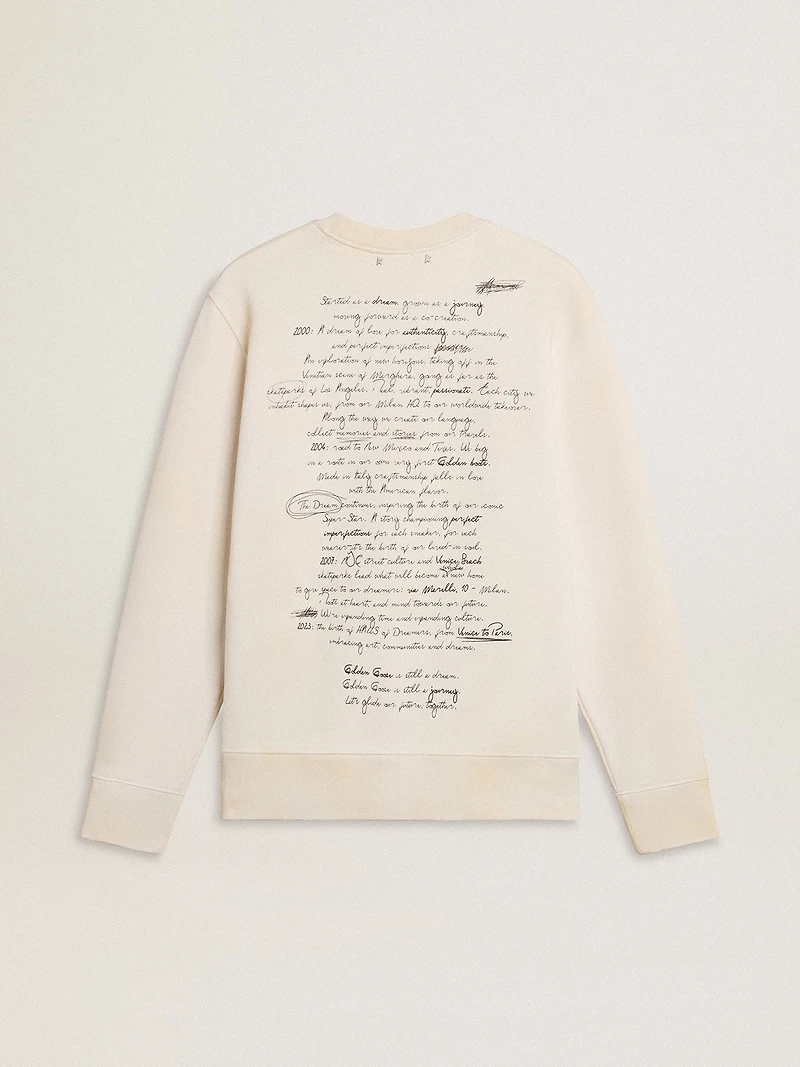 Started as a dream, grown as a journey,
moving forward as a co-creation.
2000: A dream of love for authenticity, craftsmanship,
and perfect imperfections
An exploration of new horizons, taking off in the
Venetian scene of Marghera, going as far as the
skateparks of Los Angeles. Real, vibrant, passionate. Each city we
inhabit shapes us, from our Milan HQ to our worldwide takeover.
Along the way we create our language,
collect memories and stories from our travels.
2004: road to New Mexico and Texas. We dig
in a roots in our own very first Golden boots.
Made in Italy craftsmanship falls in love
with the American flavor.
The Dream continues, inspiring the birth of our iconic
Super-Star. A story championing perfect
imperfections for each sneaker, for each
wearer-it's the birth of our lived-in soul.
2007: street culture and Venice Beach
skateparks lead what will become a new home
to give space to our dreamers: via Merello, 10 - Milan.
boot at heart, and mind towards our future.
We're expanding time and expanding culture.
2023: the birth of HAUS of Dreamers, from Venice to Paris,
embracing art, communities and dreams.
Golden Goose is still a dream.
Golden Goose is still a journey.
Let's glide our future, together.